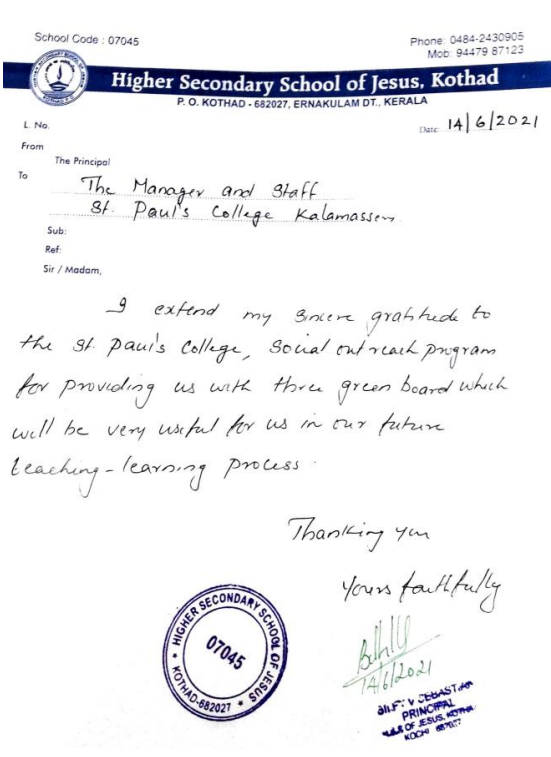 School Code : 07045
Phone: 0484-2430905
Mob: 94479 87123
Higher Secondary School of Jesus, Kothad
P. O. KOTHAD - 682027, ERNAKULAM DT., KERALA
L. No.
Date 14/6/2021
From
The Principal
To
The Manager and Staff
St. Paul's College Kalamassery
Sub:
Ref:
Sir / Madam,
I extend my sincere gratitude to
the St. Paul's College, Social outreach program
for providing us with three green board which
will be very useful for us in our future
teaching-learning process.
Thanking you
Yours faithfully
14/6/2021
HIGHER SECONDARY SCHOOL OF JESUS
07045
KOTHAD-682027
V SEBASTIAN
PRINCIPAL
OF JESUS, KOTHAD
KOCHI 682027